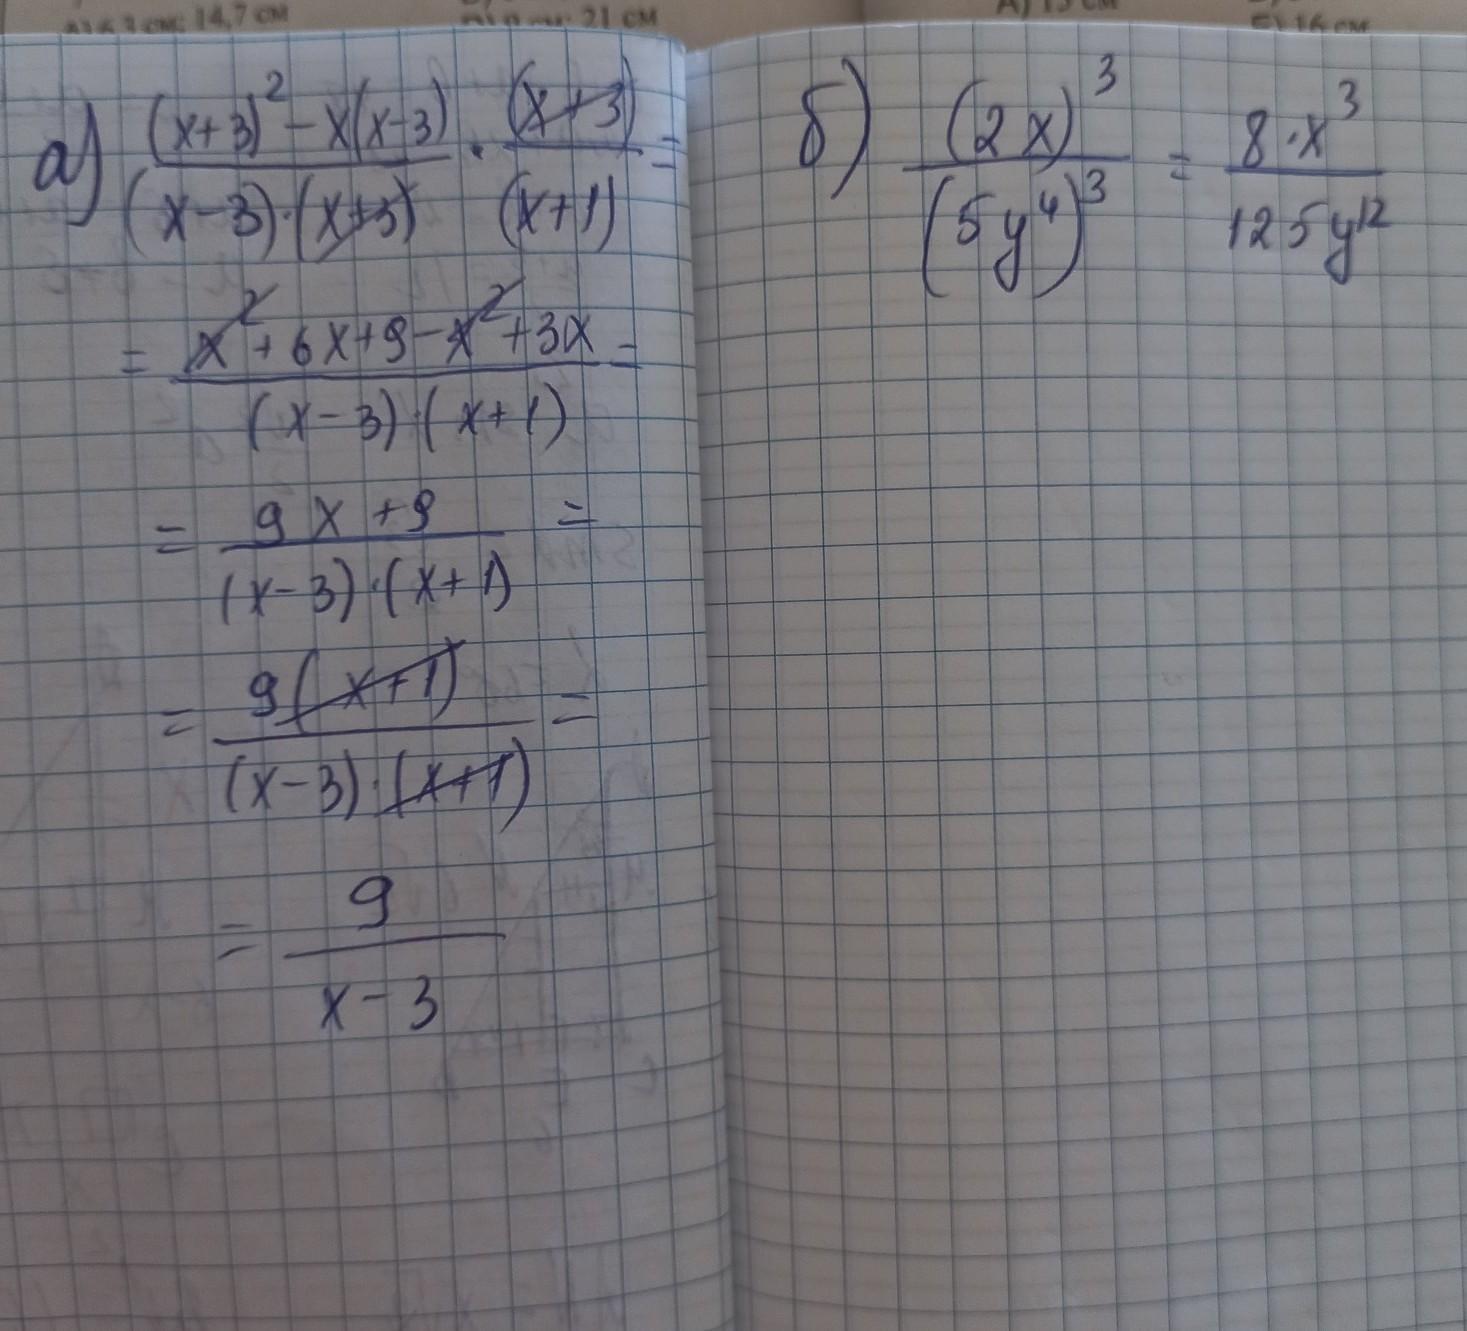 А) 6,3 см; 14,7 см
21 см
А) 13 см
Б) 16 см
а) ((x+3)² – x(x–3))/((x–3)·(x+3)) · (x+3)/(x+1) =
= (x² + 6x + 9 – x² + 3x)/((x–3)·(x+1)) =
= (9x + 9)/((x–3)·(x+1)) =
= 9(x+1)/((x–3)·(x+1)) =
= 9/(x–3)
б) (2x)³/(5y⁴)³ = 8·x³/125y¹²